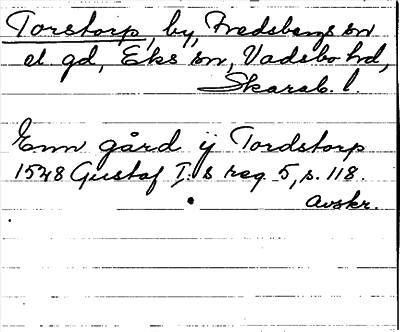 Torstorp, by, Fredsbergs sn
el. gd, Eks sn, Vadsbo hd,
Skarab. l.
Enn gård ij Tordstorp
1548 Gustaf I:s reg 5, s. 118.
Avskr.